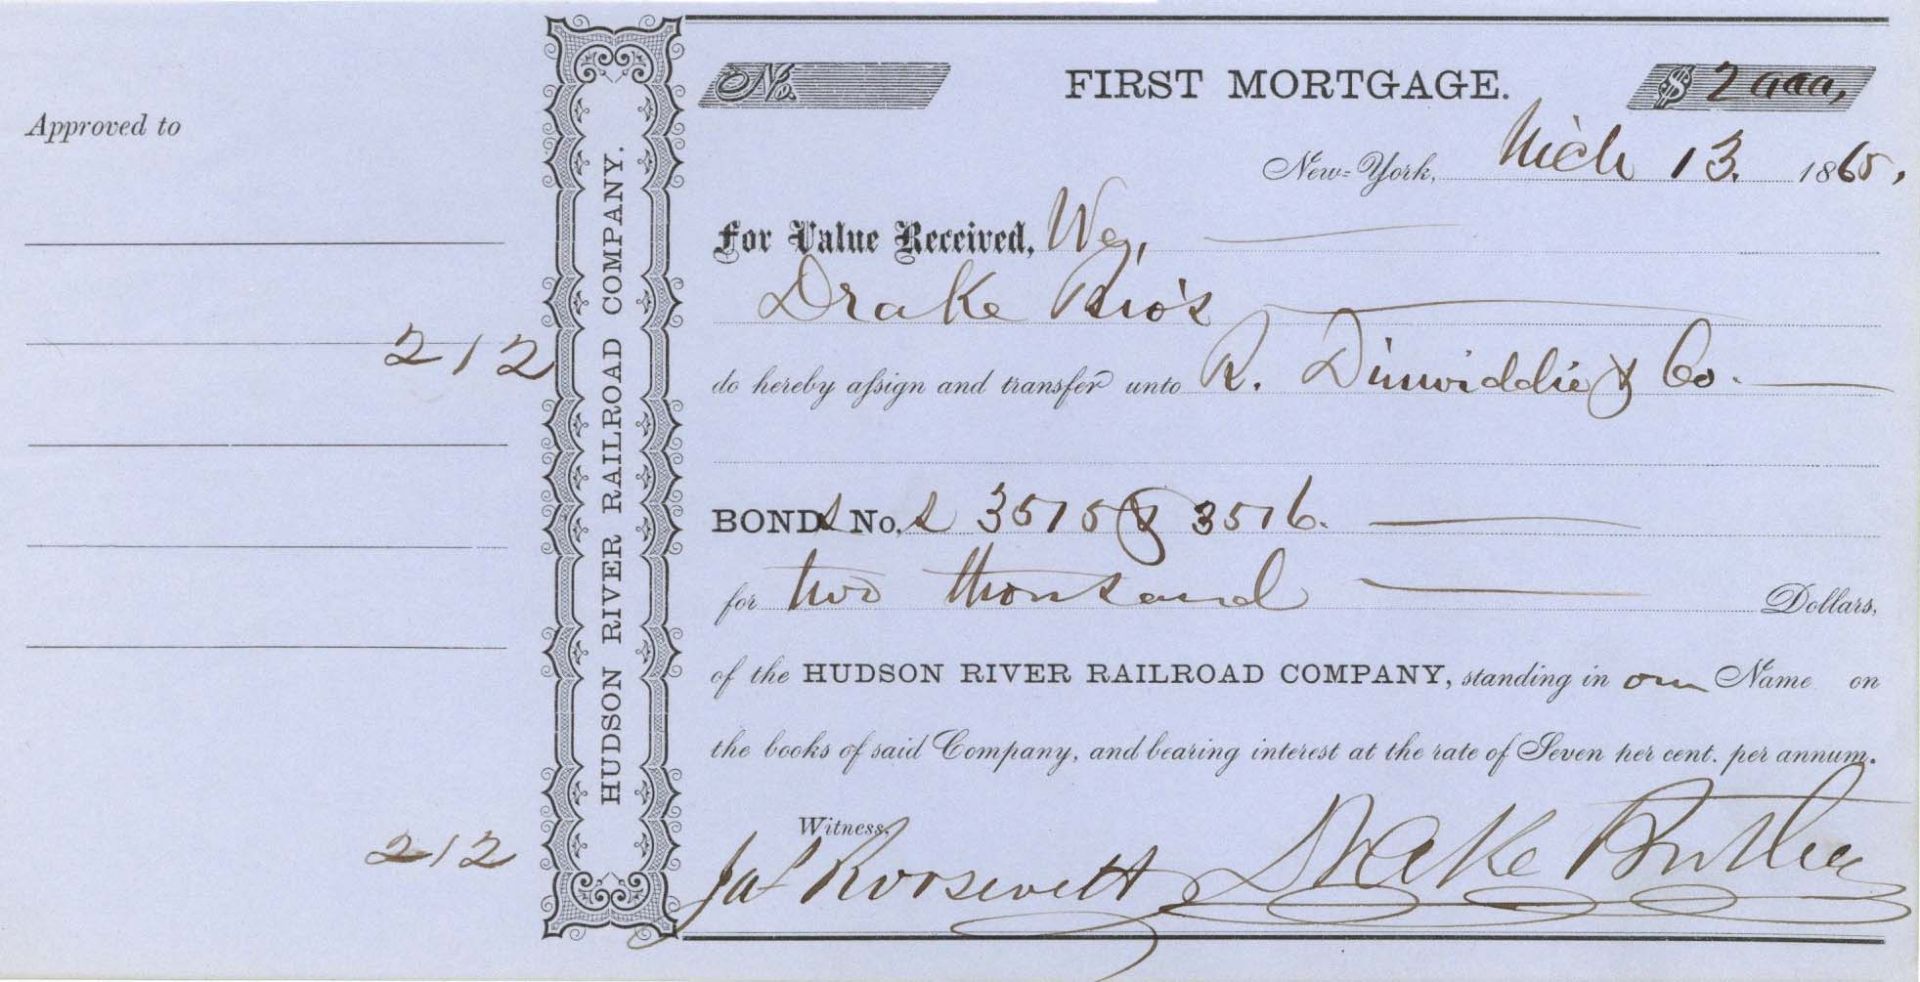 Approved to
212
212
HUDSON RIVER RAILROAD COMPANY.
No.
FIRST MORTGAGE.
$ 2000,
New-York, Mch 13. 1865,
For Value Received, We,
Drake Bro's
do hereby assign and transfer unto R. Dinwiddie & Co.
BONDs No.s 3515 & 3516.
for two thousand Dollars,
of the HUDSON RIVER RAILROAD COMPANY, standing in our Name on
the books of said Company, and bearing interest at the rate of Seven per cent. per annum.
Witness,
Jas Roosevelt
Drake Brothers